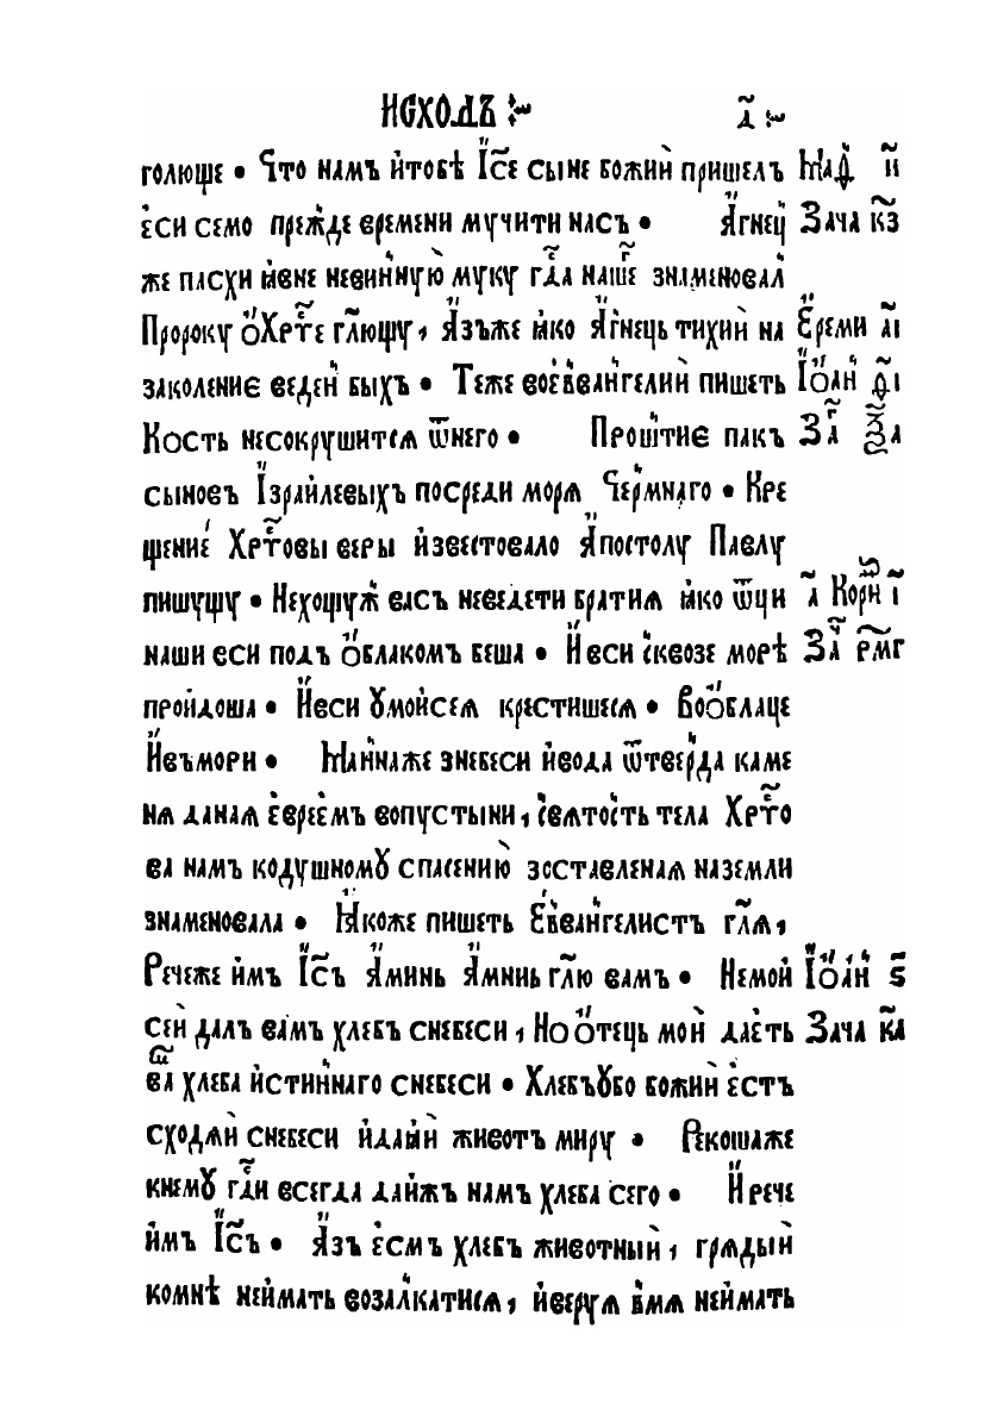 ИСХОДЪ · д҃ ·
голюще • Что намъ и҆тобѣ І҆с҃е сыне божий пришелъ Мад҃ и҃
е҆си семо прежде времени мучити насъ • А҆гнец Зача к҃з
же пасхи ꙗ҆вне невинную муку гд҃а наше знаменовал
Пророку ѻ҆Хрт҃е гл҃ющу, А҆зъже ꙗ҆ко А҆гнець тихий на Е҆реми а҃і
заколение веден быхъ • Теже воеѵ҆вангелий пишеть І҆ѻан ѳ҃і
Кость несокрушится ѿнего • Проштие пакъ За҃ ѯ҃а
сыновъ І҆зраилевыхъ посреди моря Чермнаго • Кре
щение Хрт҃овы веры и҆звестовало А҆постолу Павлу
пишущу • Нехощуж васъ неведети братия ꙗ҆ко ѿци а҃ Корин і҃
наши вси подъ ѻ҆блакомъ беша • И҆вси сквозе морѣ За҃ рм҃г
проидоша • И҆вси ꙋмоисея крестишеся • Воѻ҆блаце
И҆въмори • Маннаже знебеси и҆вода ѿтверда каме
ня даная е҆вреемъ вопустыни, святость тела Хрт҃о
ва намъ кодушномꙋ спасению зоставленая наземли
знаменовала • Ꙗ҆коже пишеть Еѵ҆вангелистъ гл҃я,
Речеже и҆мъ І҆с҃ъ А҆минь А҆мнь гл҃ю вамъ • Немой І҆ѻан ѕ҃
сей далъ вамъ хлебъ снебеси, Но ѻ҆тець мой даеть Зача к҃а
ва хлеба и҆стиннаго снебеси • Хлебъꙋбо божий е҆стъ
сходяй снебеси и҆даяй животъ миру • Рекошаже
кнемꙋ гд҃и всегда дайжъ намъ хлеба сего • И҆рече
и҆мъ І҆с҃ъ • А҆зъ е҆смъ хлебъ животный, грядый
комнѣ неимать возалкатися, и҆веруя вмя неимать